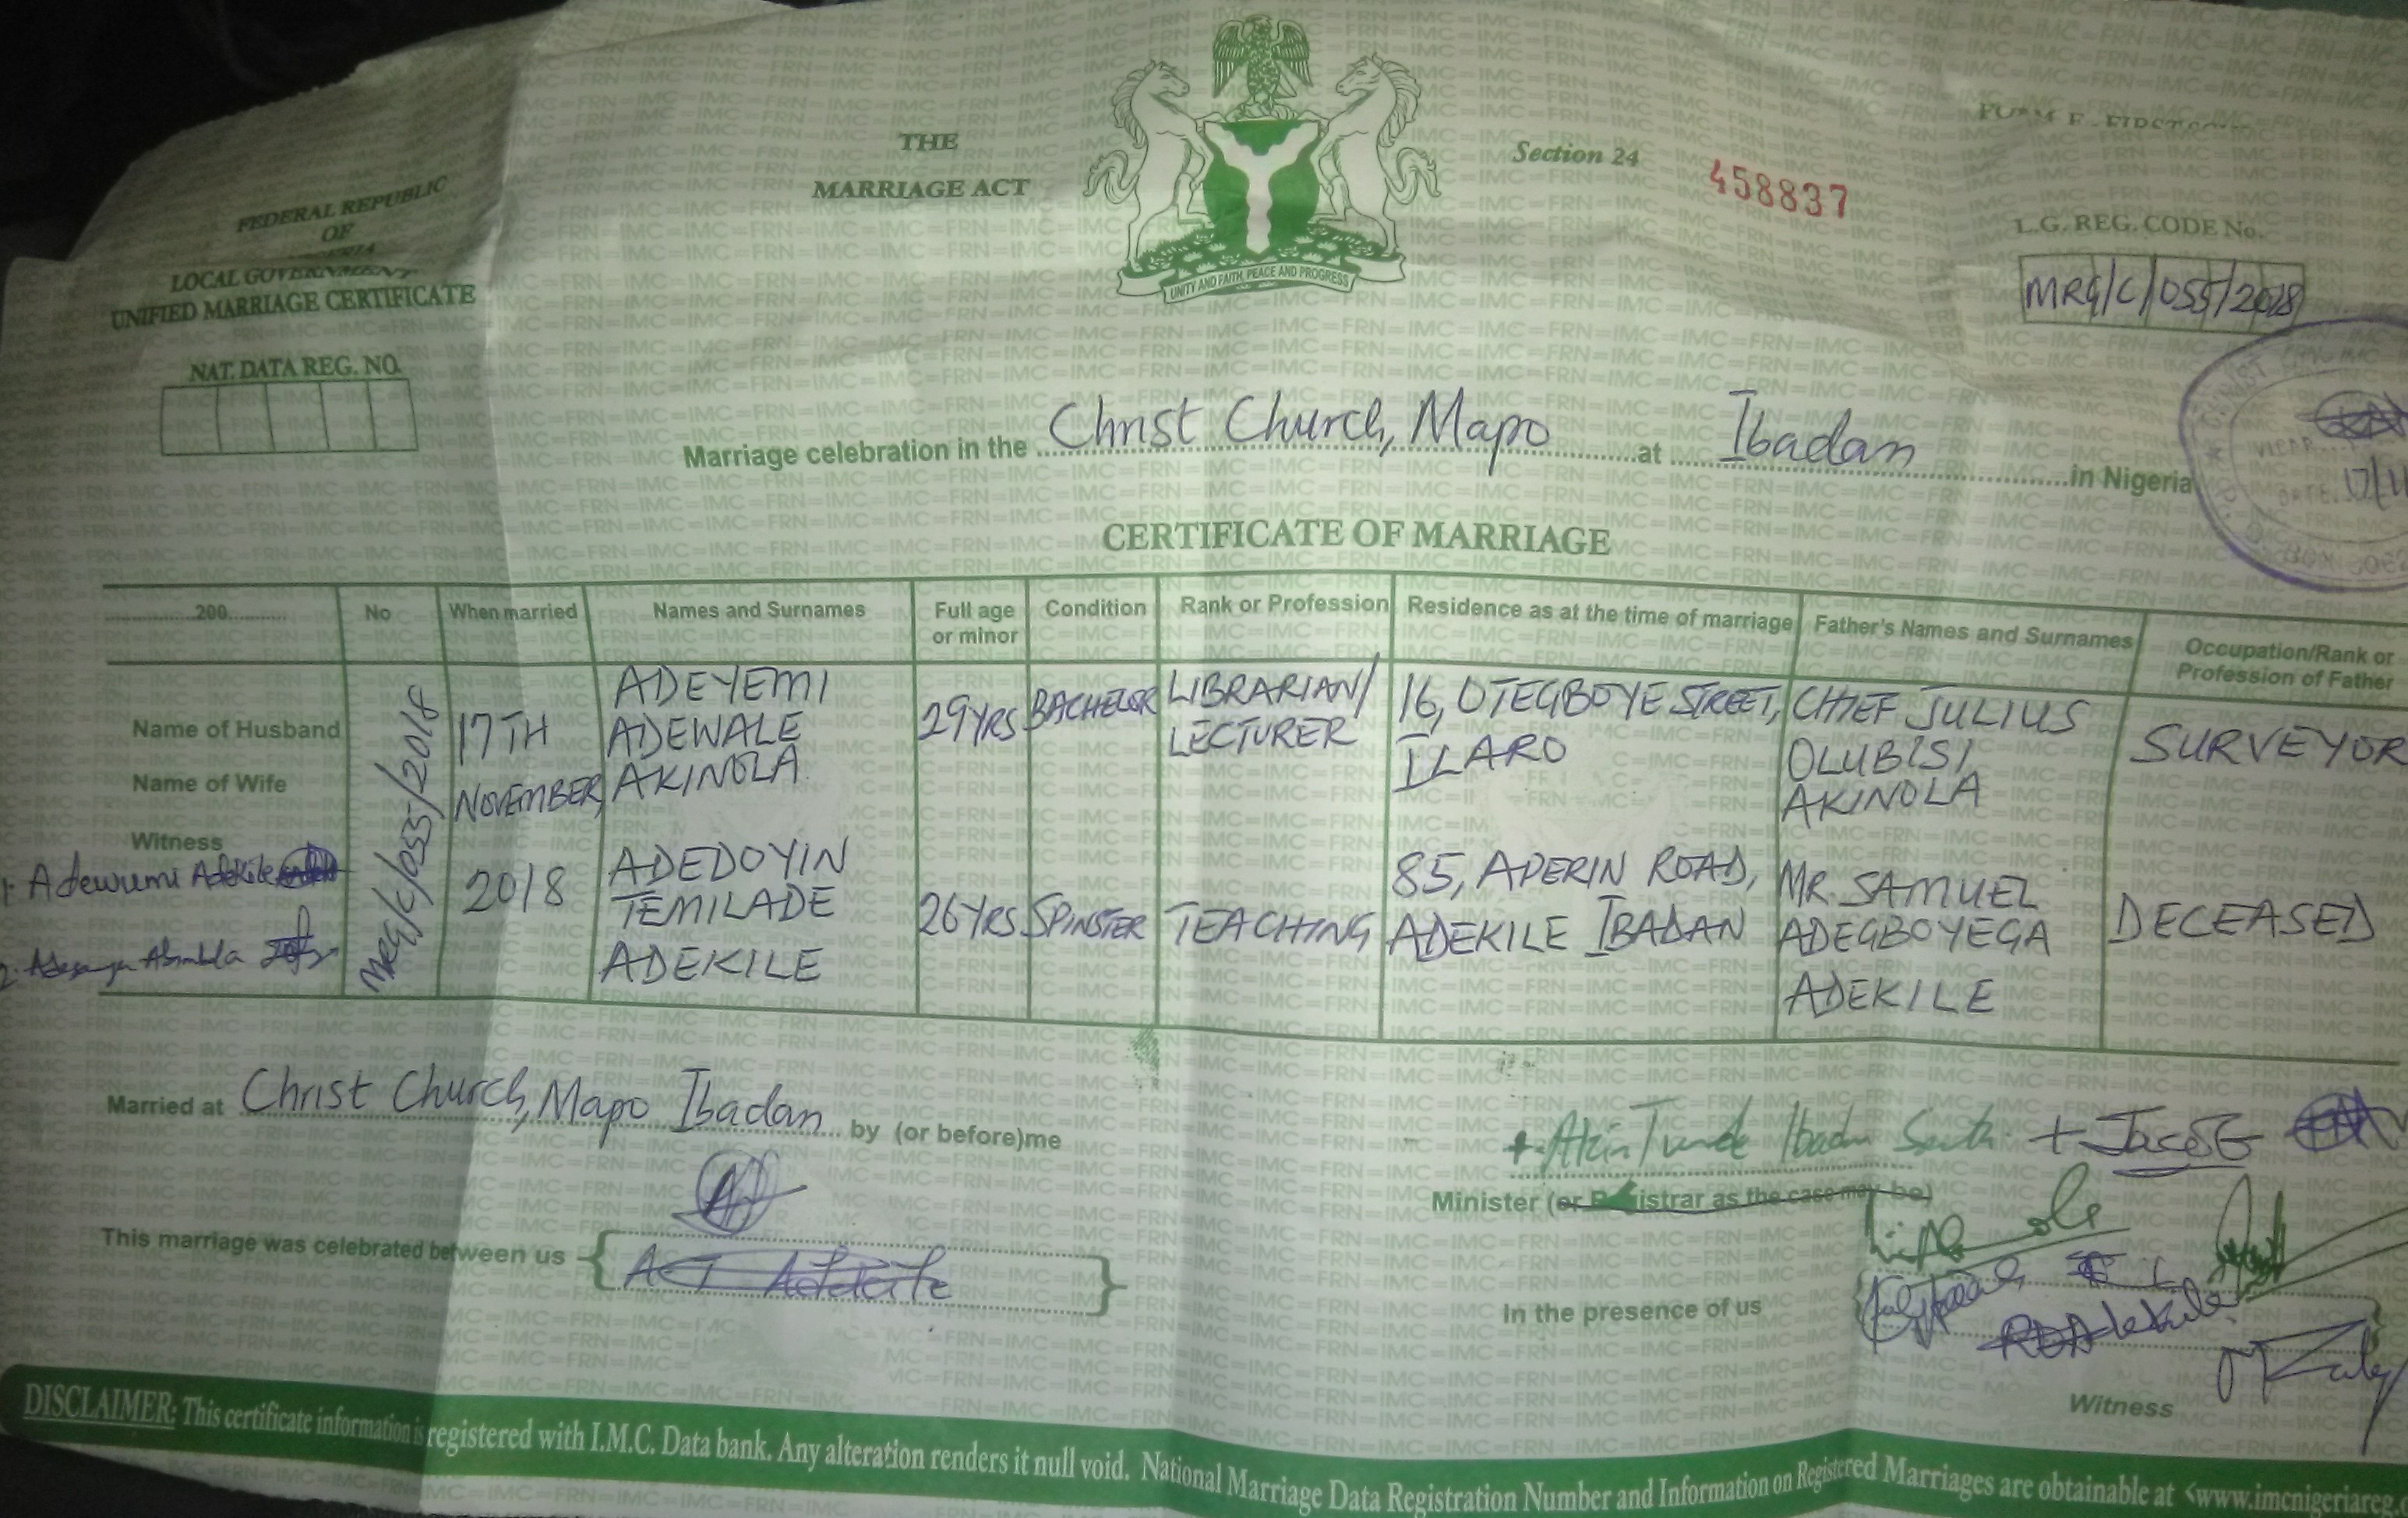 FEDERAL REPUBLIC
OF
LOCAL GOVERNMENT
UNIFIED MARRIAGE CERTIFICATE
NAT. DATA REG. NO.
THE
MARRIAGE ACT
UNITY AND FAITH, PEACE AND PROGRESS
Section 24
458837
FORM E - FIRST
L.G. REG. CODE No.
MRG/C/055/2018
Marriage celebration in the Christ Church, Mapo at Ibadan in Nigeria
DATE. 17/11
CERTIFICATE OF MARRIAGE
200 No When married Names and Surnames Full age or minor Condition Rank or Profession Residence as at the time of marriage Father's Names and Surnames Occupation/Rank or Profession of Father
Name of Husband
Name of Wife
Witness
1. Adewumi Adekile
2.
MRG/C/055/2018
17TH
NOVEMBER,
2018
ADEYEMI
ADEWALE
AKINOLA
29YRS
BACHELOR
LIBRARIAN/
LECTURER
16, OTEGBOYE STREET,
ILARO
CHIEF JULIUS
OLUBISI
AKINOLA
SURVEYOR
ADEDOYIN
TEMILADE
ADEKILE
26YRS
SPINSTER
TEACHING
85, APERIN ROAD,
ADEKILE IBADAN
MR. SAMUEL
ADEGBOYEGA
ADEKILE
DECEASED
Married at Christ Church, Mapo Ibadan by (or before)me
+ Akin Tunde Ibadan South
Minister (or Registrar as the case may be)
This marriage was celebrated between us
In the presence of us
Witness
DISCLAIMER: This certificate information is registered with I.M.C. Data bank. Any alteration renders it null void. National Marriage Data Registration Number and Information on Registered Marriages are obtainable at <www.imcnigeriareg.